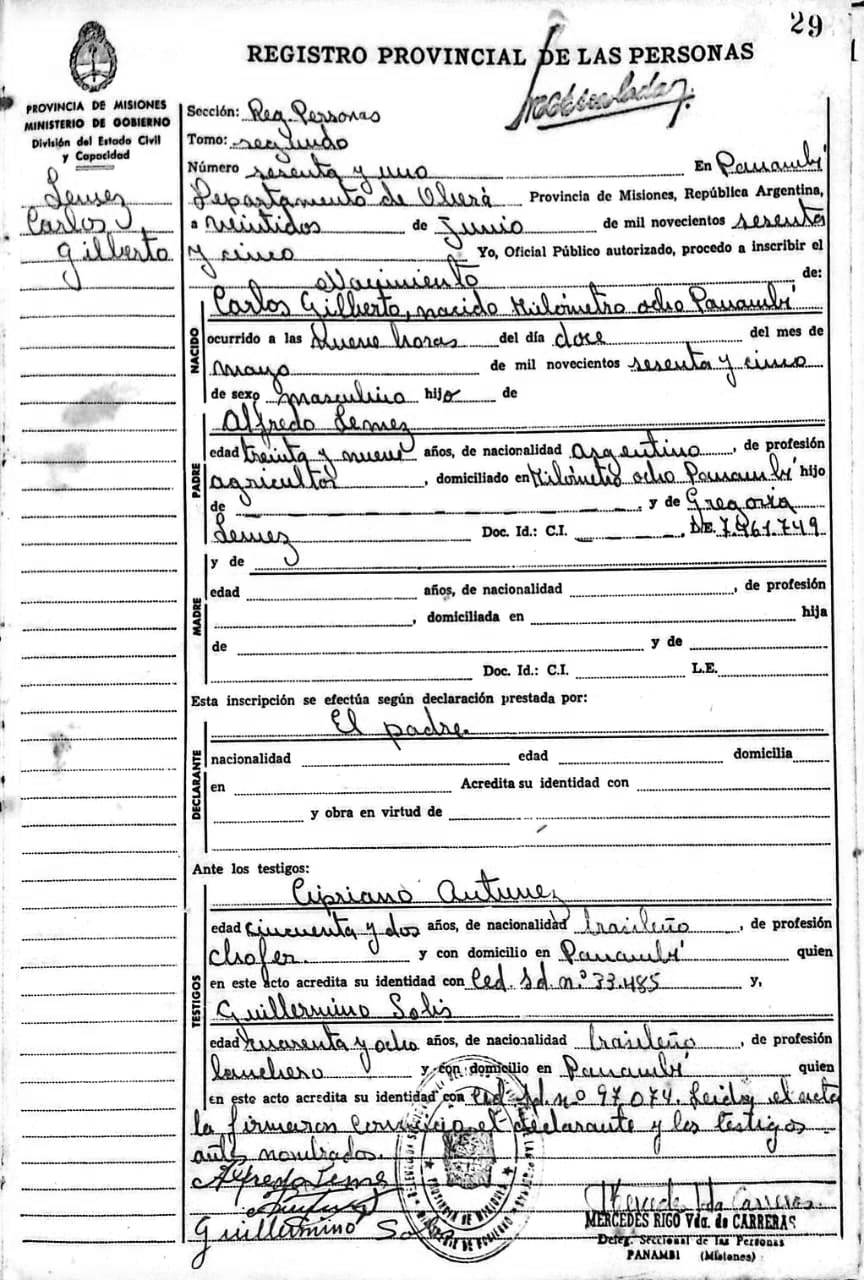 29
REGISTRO PROVINCIAL DE LAS PERSONAS
PROVINCIA DE MISIONES
MINISTERIO DE GOBIERNO
División del Estado Civil
y Capacidad
Lemez
Carlos
Gilberto
Sección: Reg. Personas
Tomo: segundo
Número sesenta y uno En Panambí
Departamento de Oberá Provincia de Misiones, República Argentina,
a veintidos de junio de mil novecientos sesenta
y cinco Yo, Oficial Público autorizado, procedo a inscribir el
Nacimiento de:
NACIDO
Carlos Gilberto, nacido Kilómetro ocho Panambí
ocurrido a las nueve horas del día doce del mes de
mayo de mil novecientos sesenta y cinco
de sexo masculino hijo de
PADRE
Alfredo Lemez
edad treinta y nueve años, de nacionalidad argentino, de profesión
agricultor, domiciliado en Kilómetro ocho Panambí hijo
de y de Gregoria
Lemez Doc. Id.: C.I. L.E. 7.461.749
y de
MADRE
edad años, de nacionalidad , de profesión
, domiciliada en hija
de y de
Doc. Id.: C.I. L.E.
Esta inscripción se efectúa según declaración prestada por:
DECLARANTE
El padre.
nacionalidad edad domicilia
en Acredita su identidad con
y obra en virtud de
Ante los testigos:
TESTIGOS
Cipriano Antunez
edad cincuenta y dos años, de nacionalidad brasileño, de profesión
chofer. y con domicilio en Panambí quien
en este acto acredita su identidad con Ced. Id. n.º 33.485 y,
Guillermino Solis
edad cuarenta y ocho años, de nacionalidad brasileño, de profesión
lanchero y con domicilio en Panambí quien
en este acto acredita su identidad con Ced. Id. nº 97.074. Leida el acta
la firmaron conmigo el declarante y los testigos
antes nombrados.
Alfredo Leme
Guillermino So
PROVINCIA DE MISIONES
MERCEDES RIGO Vda. de CARRERAS
Deleg. Seccional de las Personas
PANAMBI (Misiones)